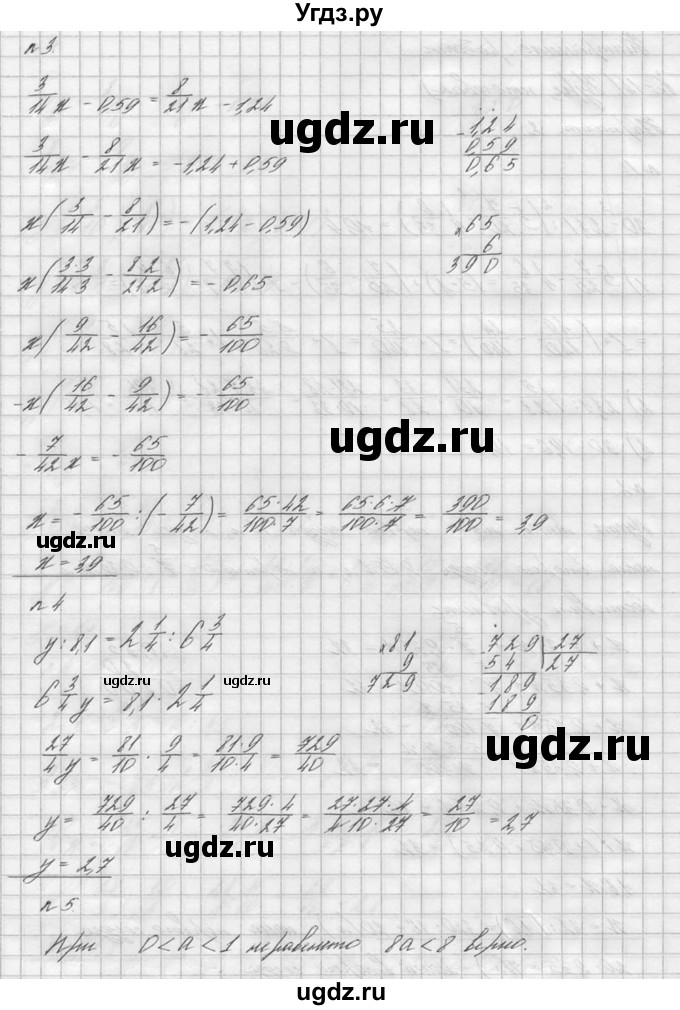 Угдз.ру
n 3.
3/14 x - 0,59 = 8/21 x - 1,24
3/14 x - 8/21 x = -1,24 + 0,59
x(3/14 - 8/21) = -(1,24 - 0,59)
x(3·3/14·3 - 8·2/21·2) = -0,65
x(9/42 - 16/42) = - 65/100
-x(16/42 - 9/42) = - 65/100
- 7/42 x = - 65/100
x = - 65/100 : (- 7/42) = 65·42/100·7 = 65·6·7/100·7 = 390/100 = 3,9
x = 3,9
- 1,24
0,59
0,65
× 65
6
390
n 4
y : 8,1 = 2 1/4 : 6 3/4
6 3/4 y = 8,1 · 2 1/4
27/4 y = 81/10 · 9/4 = 81·9/10·4 = 729/40
y = 729/40 : 27/4 = 729·4/40·27 = 27·27·4/4·10·27 = 27/10 = 2,7
y = 2,7
× 81
9
729
729 | 27
54 | 27
189
189
0
n 5.
При 0 < a < 1 неравенство 8a < 8 верно.
ugdz.ru
ugdz.ru
ugdz.ru
ugdz.ru
ugdz.ru
ugdz.ru
ugdz.ru
ugdz.ru
ugdz.ru